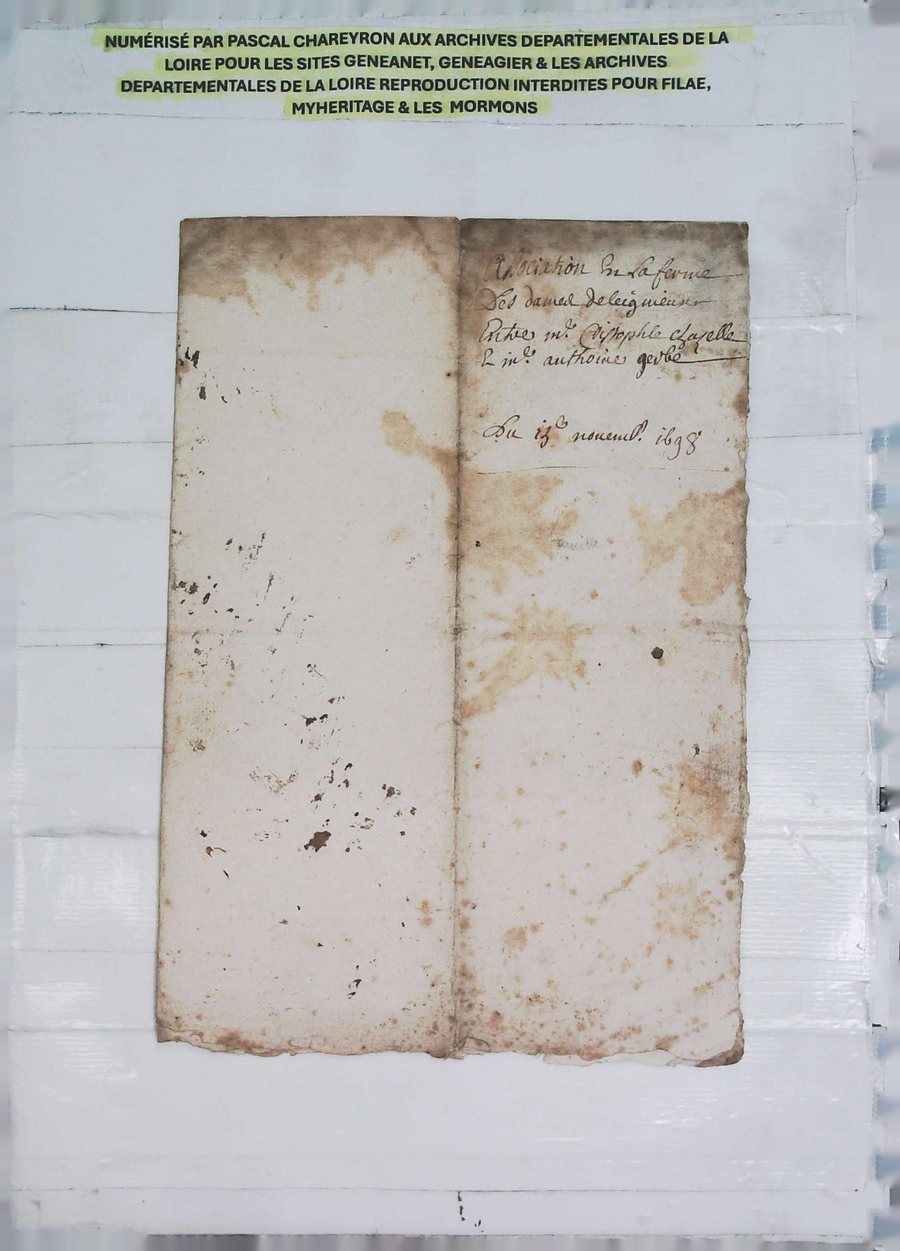 NUMÉRISÉ PAR PASCAL CHAREYRON AUX ARCHIVES DEPARTEMENTALES DE LA
LOIRE POUR LES SITES GENEANET, GENEAGIER & LES ARCHIVES
DEPARTEMENTALES DE LA LOIRE REPRODUCTION INTERDITES POUR FILAE,
MYHERITAGE & LES MORMONS
Association En La ferme
Des dames de leignieux
Entre mre Cristophle chazelle
E mre anthoine gerbe
Du novemb. 1698